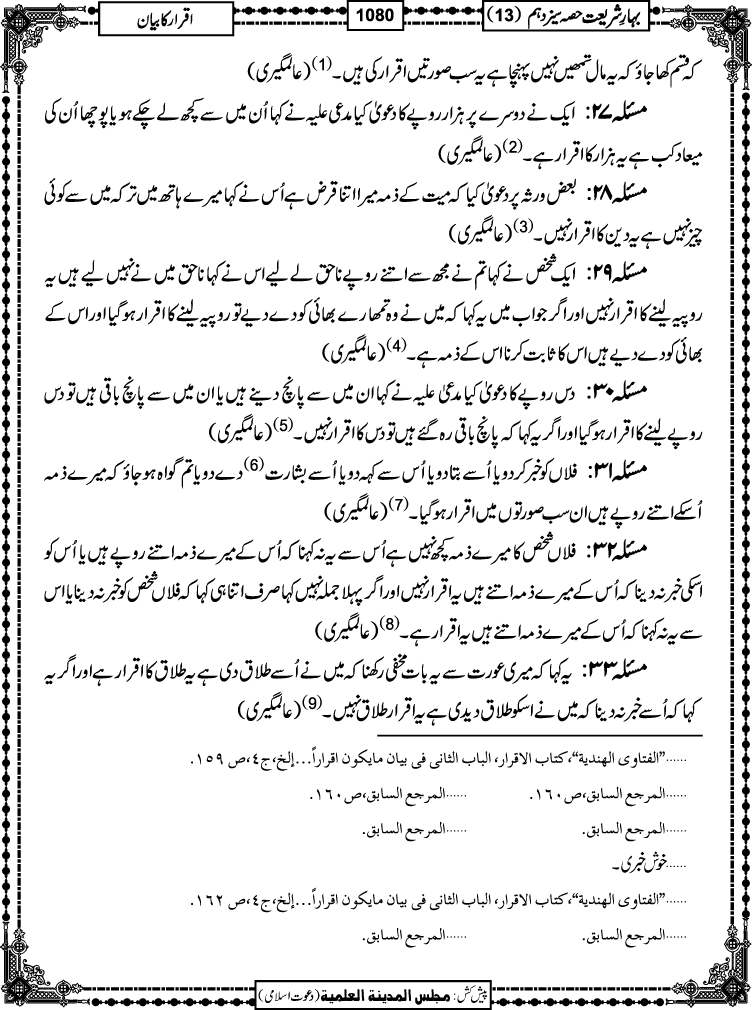 بہارِ شریعت حصہ سیزدہم (13)
1080
اقرار کا بیان
کہ قسم کھا جاؤ کہ یہ مال تمھیں نہیں پہنچا ہے یہ سب صورتیں اقرار کی ہیں۔(1) (عالمگیری)
مسئلہ ۲۷: ایک نے دوسرے پر ہزار روپے کا دعویٰ کیا مدعی علیہ نے کہا اُن میں سے کچھ لے چکے ہو یا پوچھا اُن کی
میعاد کب ہے یہ ہزار کا اقرار ہے۔(2) (عالمگیری)
مسئلہ ۲۸: بعض ورثہ پر دعویٰ کیا کہ میت کے ذمہ میرا اتنا قرض ہے اُس نے کہا میرے ہاتھ میں ترکہ میں سے کوئی
چیز نہیں ہے یہ دین کا اقرار نہیں۔(3) (عالمگیری)
مسئلہ ۲۹: ایک شخص نے کہا تم نے مجھ سے اتنے روپے ناحق لے لیے اس نے کہا ناحق میں نے نہیں لیے ہیں یہ
روپیہ لینے کا اقرار نہیں اور اگر جواب میں یہ کہا کہ میں نے وہ تمھارے بھائی کو دے دیے تو روپیہ لینے کا اقرار ہوگیا اور اس کے
بھائی کو دے دیے ہیں اس کا ثابت کرنا اس کے ذمہ ہے۔(4) (عالمگیری)
مسئلہ ۳۰: دس روپے کا دعویٰ کیا مدعیٰ علیہ نے کہا ان میں سے پانچ دینے ہیں یا ان میں سے پانچ باقی ہیں تو دس
روپے لینے کا اقرار ہوگیا اور اگر یہ کہا کہ پانچ باقی رہ گئے ہیں تو دس کا اقرار نہیں۔(5) (عالمگیری)
مسئلہ ۳۱: فلاں کو خبر کردو یا اُسے بتا دو یا اُس سے کہہ دو یا اُسے بشارت(6) دے دو یا تم گواہ ہوجاؤ کہ میرے ذمہ
اُسکے اتنے روپے ہیں ان سب صورتوں میں اقرار ہوگیا۔(7) (عالمگیری)
مسئلہ ۳۲: فلاں شخص کا میرے ذمہ کچھ نہیں ہے اُس سے یہ نہ کہنا کہ اُس کے میرے ذمہ اتنے روپے ہیں یا اُس کو
اسکی خبر نہ دینا کہ اُس کے میرے ذمہ اتنے ہیں یہ اقرار نہیں اور اگر پہلا جملہ نہیں کہا صرف اتنا ہی کہا کہ فلاں شخص کو خبر نہ دینا یا اس
سے یہ نہ کہنا کہ اُس کے میرے ذمہ اتنے ہیں یہ اقرار ہے۔(8) (عالمگیری)
مسئلہ ۳۳: یہ کہا کہ میری عورت سے یہ بات مخفی رکھنا کہ میں نے اُسے طلاق دی ہے یہ طلاق کا اقرار ہے اور اگر یہ
کہا کہ اُسے خبر نہ دینا کہ میں نے اسکو طلاق دیدی ہے یہ اقرار طلاق نہیں۔(9) (عالمگیری)
......”الفتاوی الھندیة“،کتاب الاقرار، الباب الثانی فی بیان مایکون اقراراً...إلخ،ج٤،ص ١٥٩.
......المرجع السابق،ص١٦٠. ......المرجع السابق،ص١٦٠.
......المرجع السابق. ......المرجع السابق.
......خوش خبری۔
......”الفتاوی الھندیة“،کتاب الاقرار، الباب الثانی فی بیان مایکون اقراراً...إلخ،ج٤،ص ١٦٢.
......المرجع السابق. ......المرجع السابق.
پیش کش: مجلس المدینة العلمیة (دعوت اسلامی)